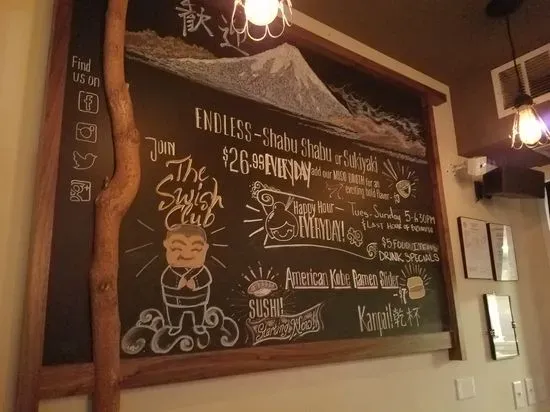 歓迎
Find
us on
ENDLESS - Shabu Shabu or Sukiyaki
$26.99 EVERYDAY add our MISO BROTH for an
exciting bold flavor
JOIN
The
Swish
Club
Happy Hour
EVERYDAY!
Tues-Sunday 5-6:30PM
& LAST HOUR OF BUSINESS
$5 FOOD ITEMS
DRINK SPECIALS
American Kobe Ramen Slider
SUSHI!
Kanpai! 乾杯